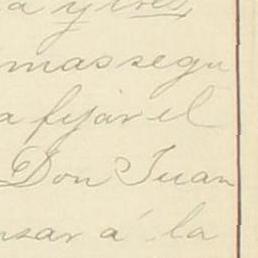 a y tres,
mas segu
a fijar el
Don Juan
nsar á la